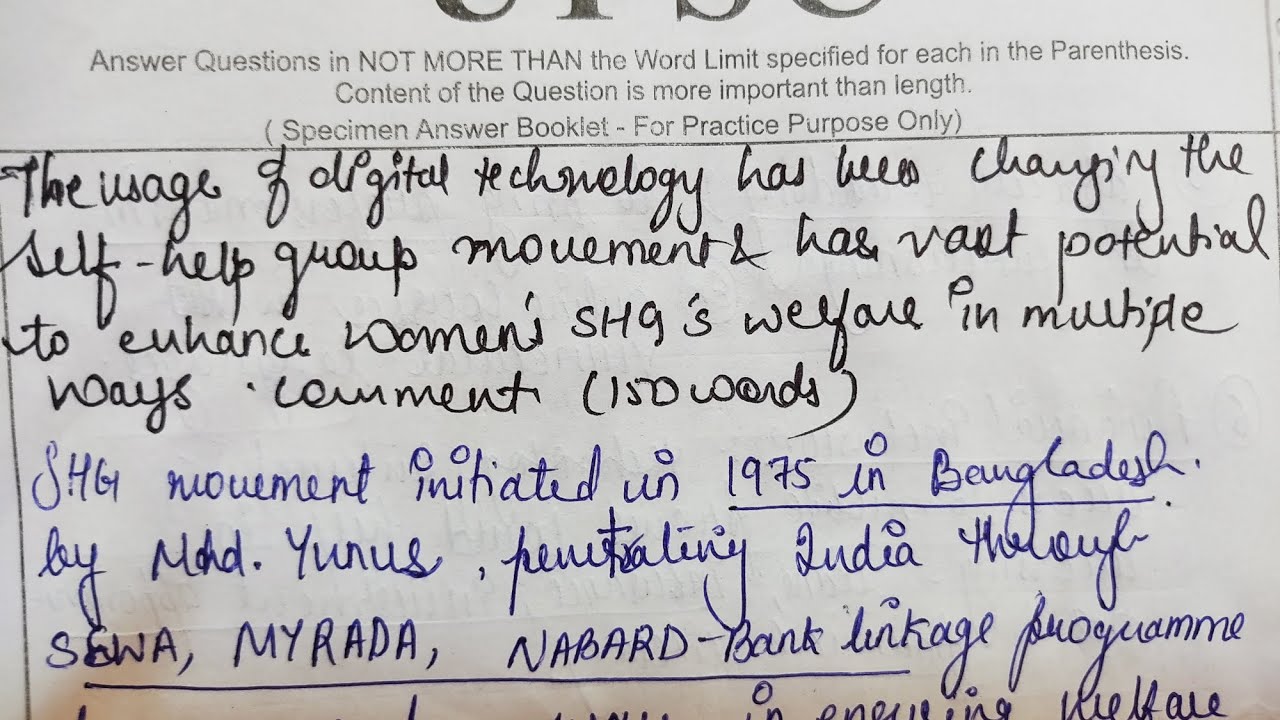 UPSC
Answer Questions in NOT MORE THAN the Word Limit specified for each in the Parenthesis.
Content of the Question is more important than length.
( Specimen Answer Booklet - For Practice Purpose Only)
The usage of digital technology has been changing the
self-help group movement & has vast potential
to enhance women's SHG's welfare in multiple
ways. comment (150 words)
SHG movement initiated in 1975 in Bangladesh.
by Mohd. Yunus, penetrating India through
SEWA, MYRADA, NABARD-Bank linkage programme
in ensuring welfare